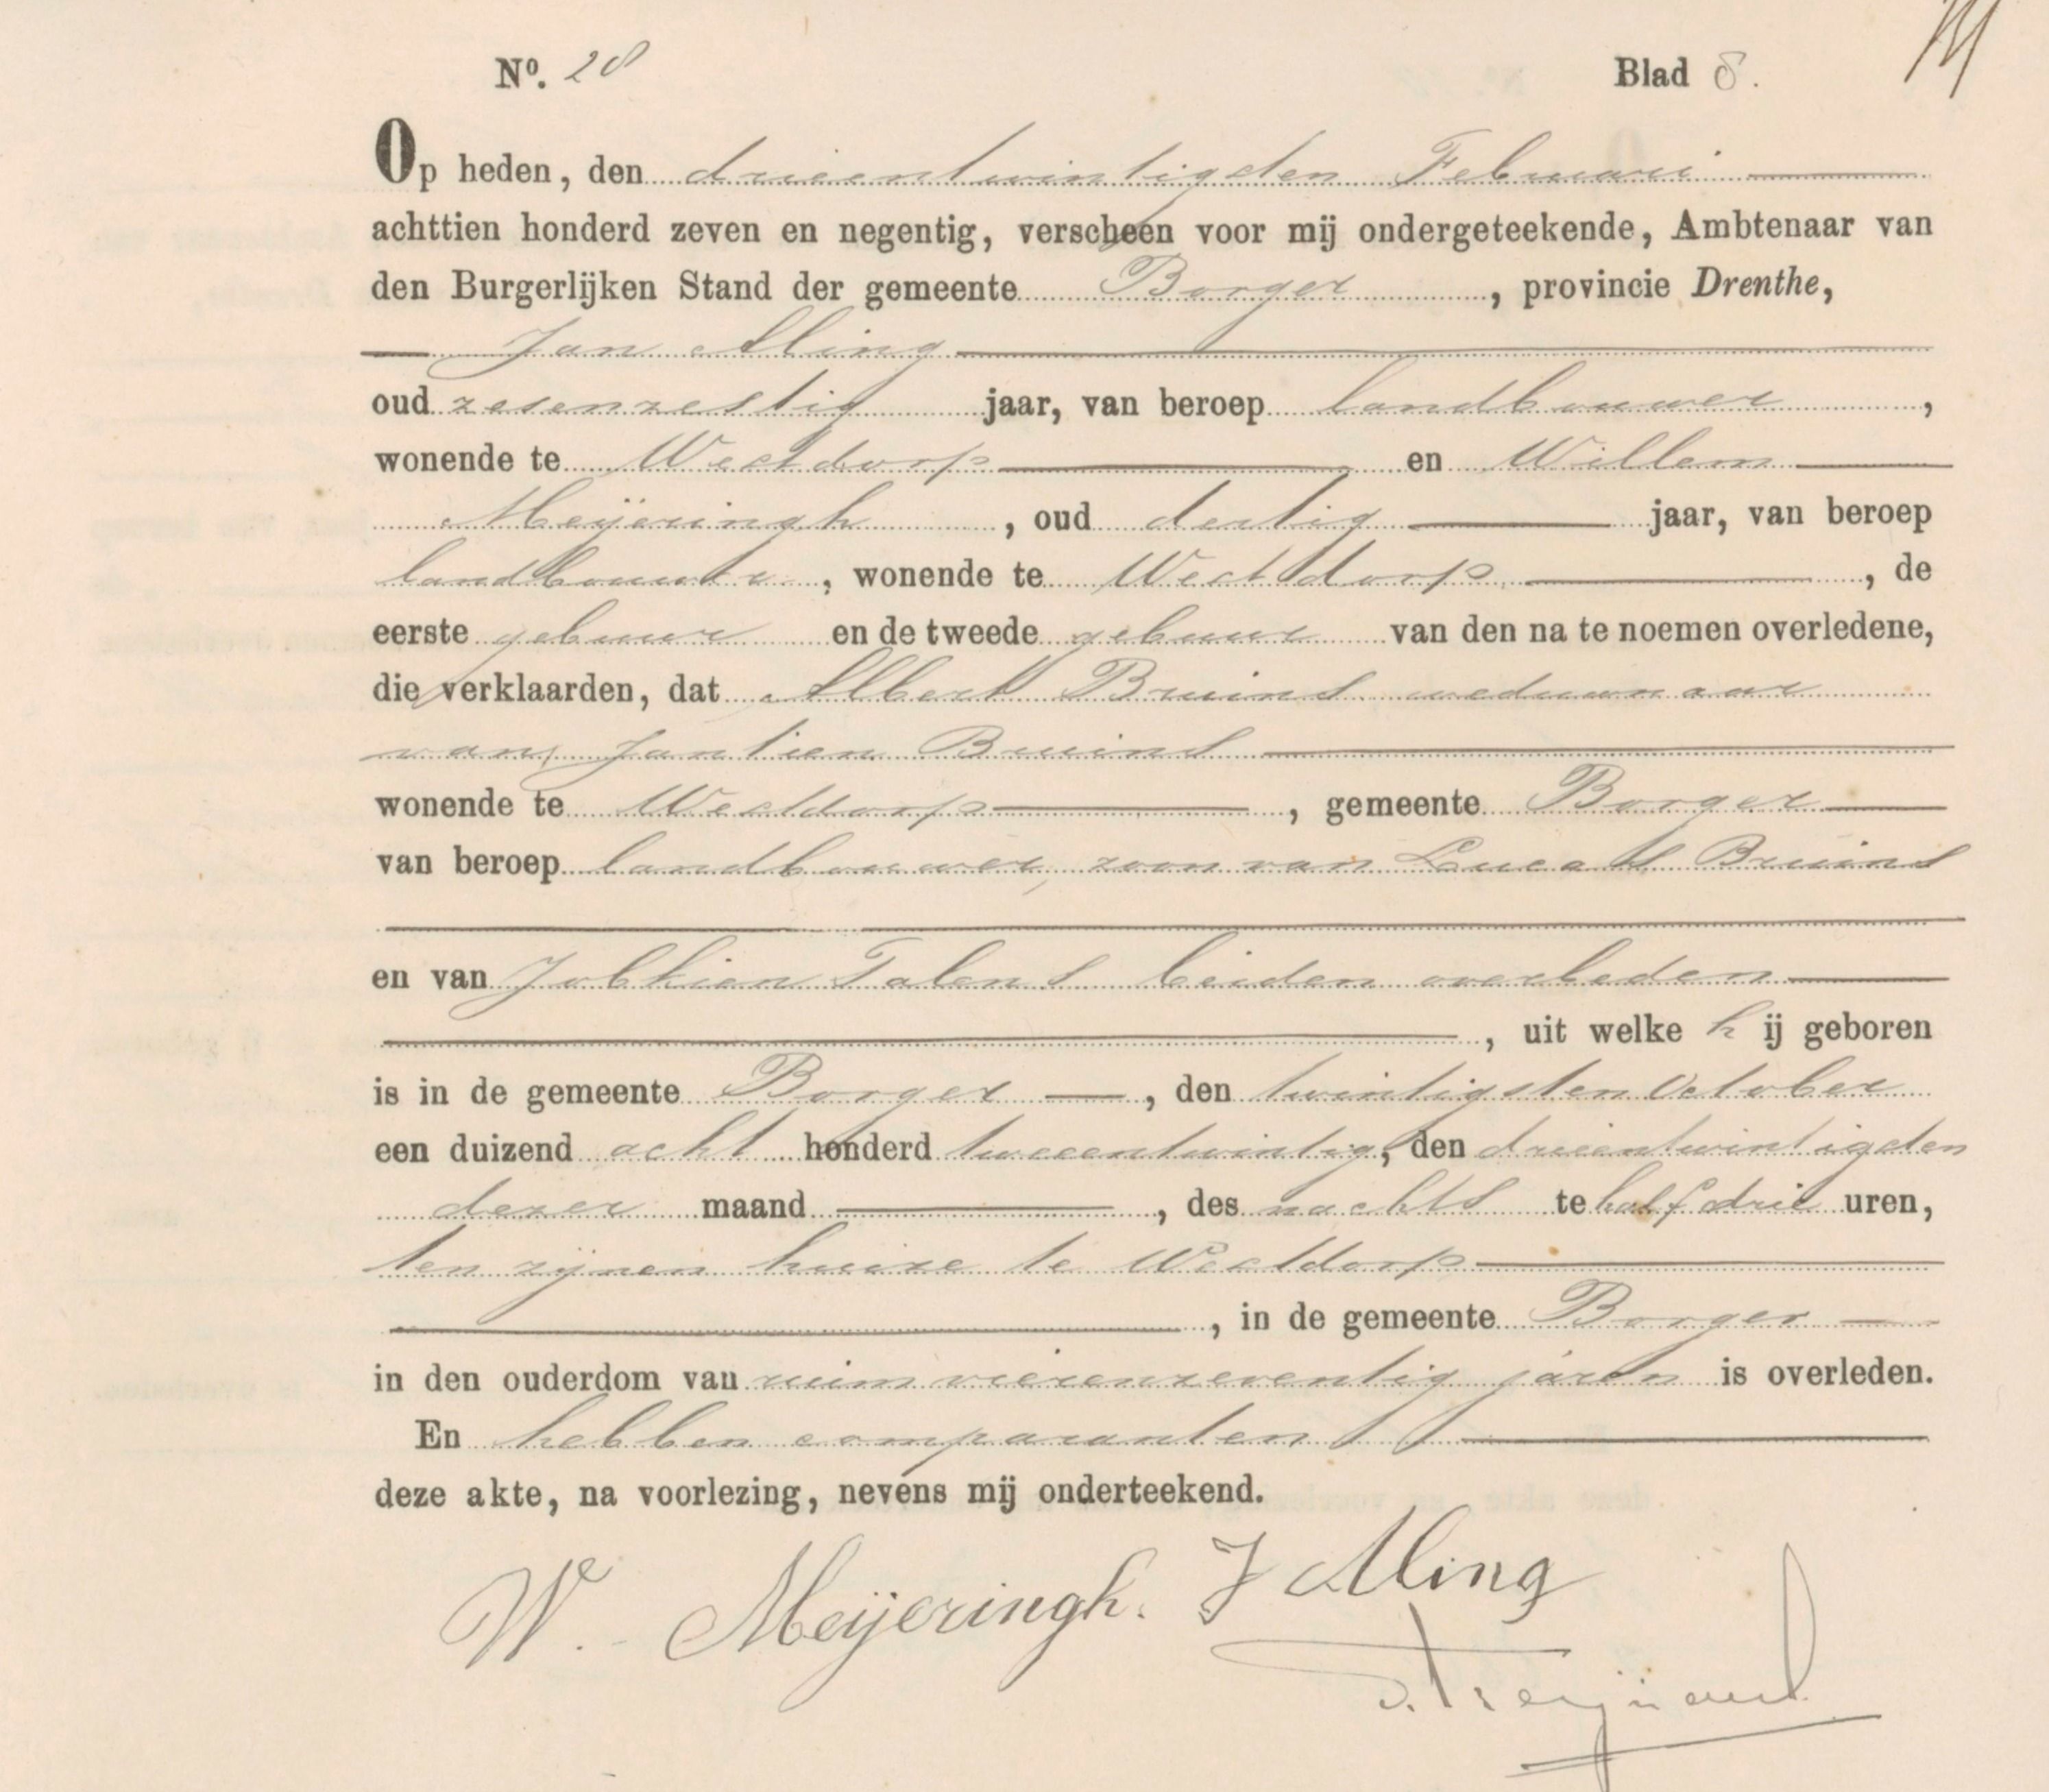 No. 28 Blad 8.
Op heden, den drieentwintigsten Februari
achttien honderd zeven en negentig, verscheen voor mij ondergeteekende, Ambtenaar van
den Burgerlijken Stand der gemeente Borger, provincie Drenthe,
Jan Aling
oud zesenzestig jaar, van beroep landbouwer,
wonende te Westdorp en Willem
Meijeringh, oud dertig jaar, van beroep
landbouwer, wonende te Westdorp, de
eerste gebuur en de tweede gebuur van den na te noemen overledene,
die verklaarden, dat Albert Bruins weduwnaar
van Jantien Bruins
wonende te Westdorp, gemeente Borger
van beroep landbouwer, zoon van Lucas Bruins
en van Jobkien Talens beiden overleden
, uit welke hij geboren
is in de gemeente Borger, den twintigsten October
een duizend acht honderd tweeentwintig, den drieentwintigsten
dezer maand, des nachts te half drie uren,
ten zijnen huize te Westdorp
, in de gemeente Borger
in den ouderdom van ruim vierenzeventig jaren is overleden.
En hebben comparanten
deze akte, na voorlezing, nevens mij onderteekend.
W. Meijeringh. J Aling